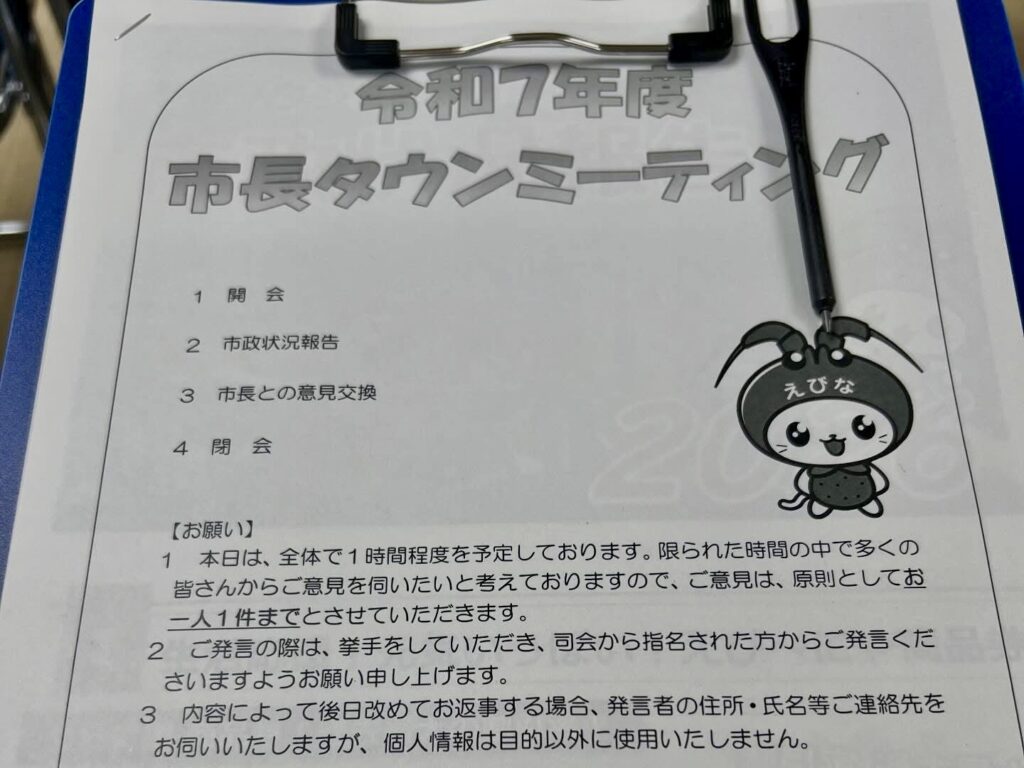 令和7年度
市長タウンミーティング
1 開 会
2 市政状況報告
3 市長との意見交換
4 閉 会
えびな
【お願い】
1 本日は、全体で1時間程度を予定しております。限られた時間の中で多くの
皆さんからご意見を伺いたいと考えておりますので、ご意見は、原則としてお
一人1件までとさせていただきます。
2 ご発言の際は、挙手をしていただき、司会から指名された方からご発言くだ
さいますようお願い申し上げます。
3 内容によって後日改めてお返事する場合、発言者の住所・氏名等ご連絡先を
お伺いいたしますが、個人情報は目的以外に使用いたしません。